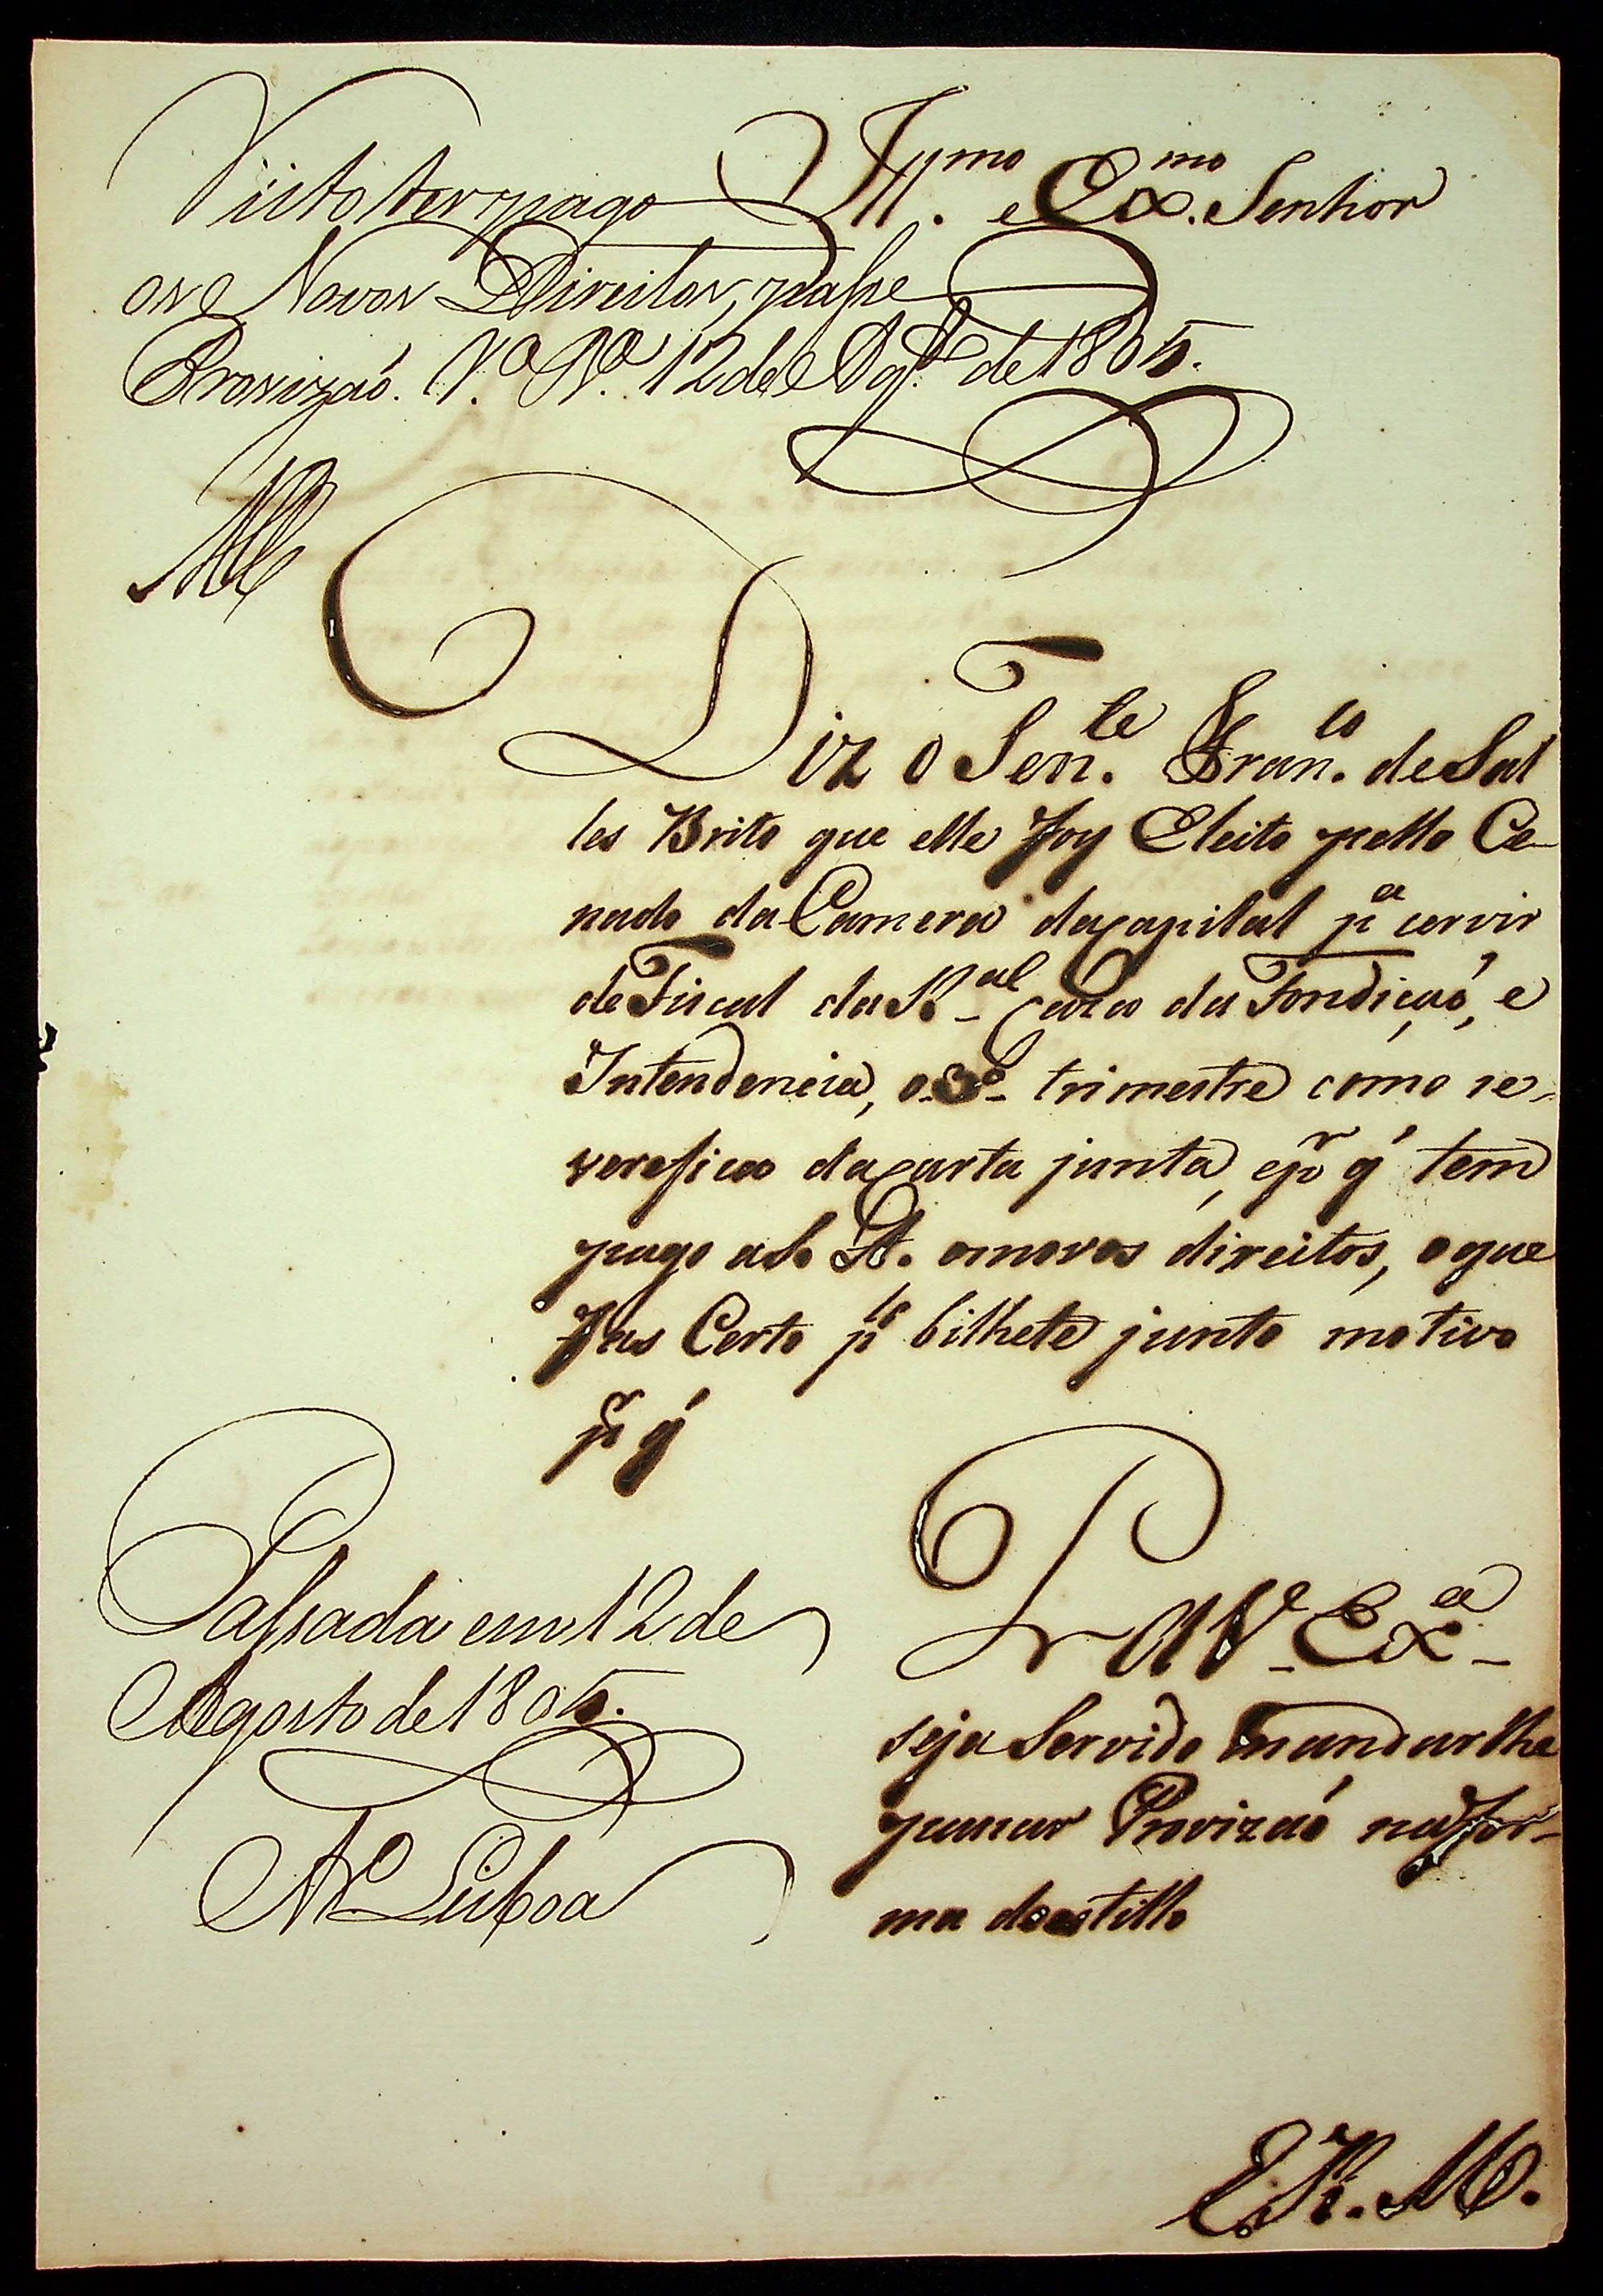 Ill.mo e Ex.mo Senhor
Visto ter pago
os Novos Direitos, passe
Provizaó. V.a R.a 12 de Ag.to de 1805.
Diz o Ten.te Fran.co de Sal
les Brito que elle foy Eleito pello Ce-
nado da Camera da capital p.a cervir
de Fiscal da R.al Caza da Fondiçaó, e
Intendencia, o 3.o trimestre como se
verefica da carta junta, e p.r q' tem
pago a S. A. os novos direitos, o que
fas Certo p.lo bilhete junto motivo
p.r q'
P. a V.a Ex.ca
seja Servido mandar lhe
passar Provizaó na for-
ma do estillo
Passada em 12 de
Agosto de 1805.
Lisboa
E. R. M.